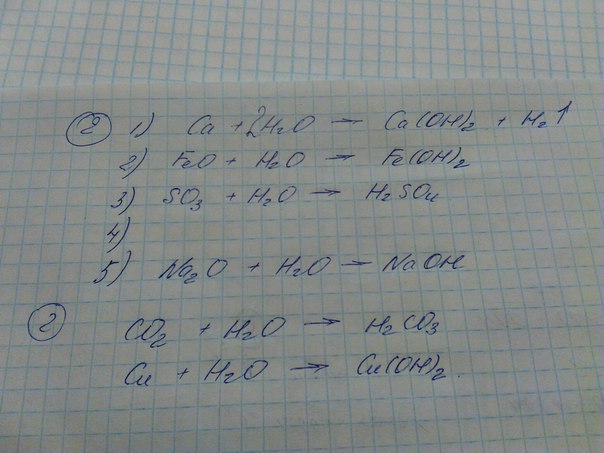 ② 1) Ca + 2H₂O → Ca(OH)₂ + H₂↑
2) FeO + H₂O → Fe(OH)₂
3) SO₃ + H₂O → H₂SO₄
4)
5) Na₂O + H₂O → NaOH
② CO₂ + H₂O → H₂CO₃
Cu + H₂O → Cu(OH)₂.